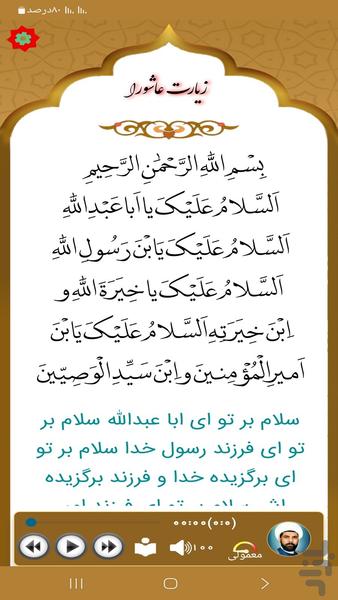 ۸۰درصد
زیارت عاشورا
بِسْمِ اللهِ الرَّحْمٰنِ الرَّحِیمِ
اَلسَّلامُ عَلَیْکَ یا اَبا عَبْدِ اللهِ
اَلسَّلامُ عَلَیْکَ یَابْنَ رَسُولِ اللهِ
اَلسَّلامُ عَلَیْکَ یا خِیَرَةَ اللهِ و
ابْنَ خِیَرَتِهِ اَلسَّلامُ عَلَیْکَ یَابْنَ
اَمیرِ الْمُؤْمِنینَ و ابْنَ سَیِّدِ الْوَصِیّینَ
سلام بر تو ای ابا عبدالله سلام بر
تو ای فرزند رسول خدا سلام بر تو
ای برگزیده خدا و فرزند برگزیده
۰۰:۰۰(۰:۰)
۱۰۰
معمولی